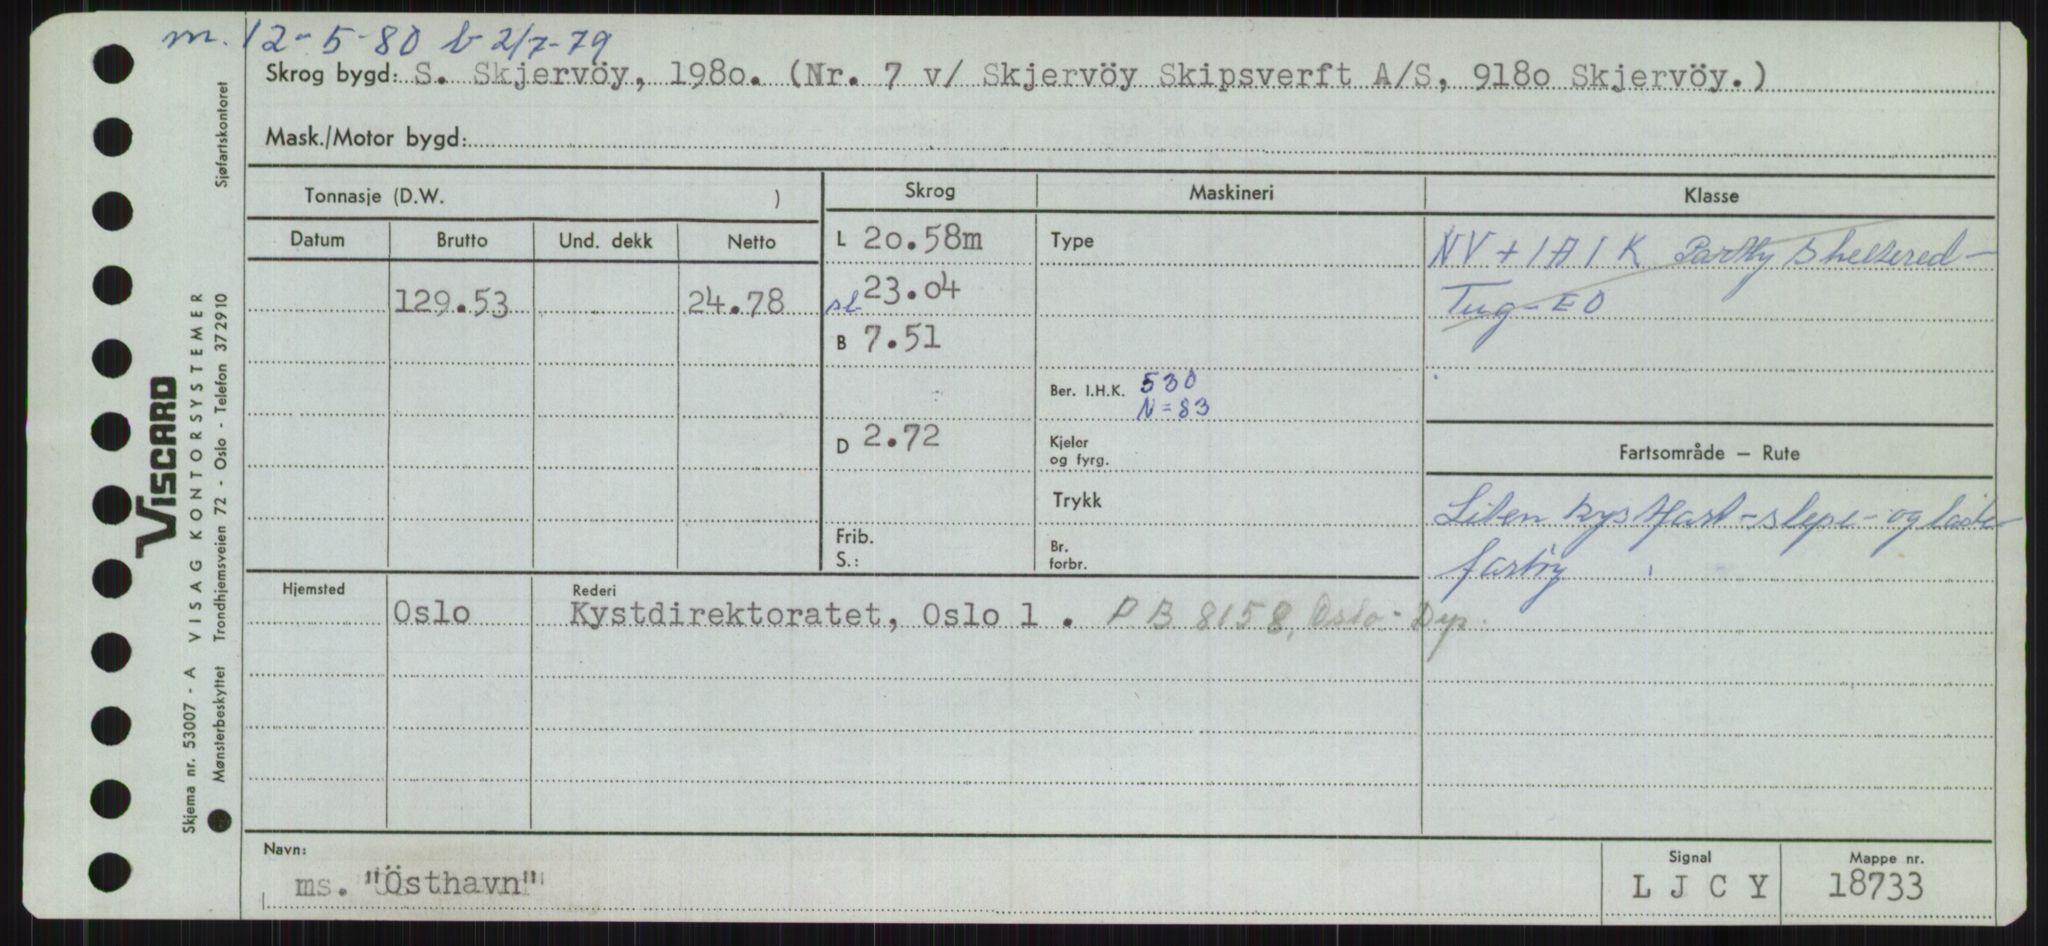 m. 12-5-80 b 2/7-79
Skrog bygd: S. Skjervöy, 1980. (Nr. 7 v/ Skjervöy Skipsverft A/S, 9180 Skjervöy.)
Mask./Motor bygd:
Tonnasje (D.W. )
Skrog
Maskineri
Klasse
Datum Brutto Und. dekk Netto
L 20.58m
Type
NV + 1A1 K Partly Sheltered -
129.53 24.78
sl 23.04
Tug - EO
B 7.51
Ber. I.H.K. 530
N = 83
D 2.72
Kjeler
og fyrg.
Fartsområde – Rute
Trykk
Liten kystfart - slepe - og
Frib.
S.:
Br.
forbr.
Hjemsted
Rederi
Oslo
Kystdirektoratet, Oslo 1 . PB 8158, Oslo - Dep.
Navn:
ms. "Östhavn"
Signal
L J C Y
Mappe nr.
18733
VISCARD
Skjema nr. 53007 - A VISAG KONTORSYSTEMER
Mønsterbeskyttet Trondhjemsveien 72 - Oslo - Telefon 372910 Sjøfartskontoret